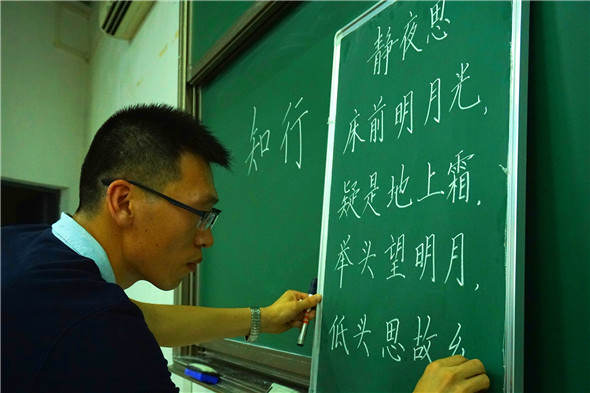 知行
静夜思
床前明月光，
疑是地上霜.
举头望明月，
低头思故乡